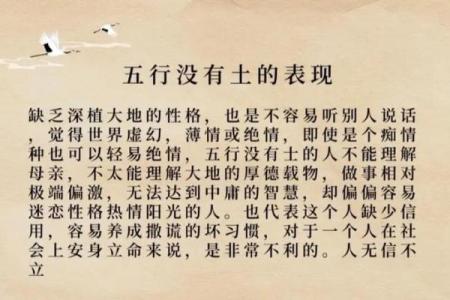 五行没有土的表现
缺乏深植大地的性格，也是不容易听别人说话
，觉得世界虚幻，薄情或绝情，即使是个痴情
种也可以轻易绝情，五行没有土的人不能理解
母亲，不太能理解大地的厚德载物，做事相对
极端偏激，无法达到中庸的智慧，却偏偏容易
迷恋性格热情阳光的人。也代表这个人缺少信
用，容易养成撒谎的坏习惯，对于一个人在社
会上安身立命来说，是非常不利的。人无信不
立